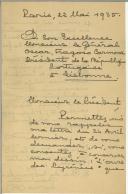 Paris, 22 Mai 1935.
A Son Excellence
Monsieur le Général
Oscar Fragoso Carmona
Président de la République
Portugaise
à Lisbonne
Monsieur le Président
Permettez-moi
de vous rappeler ma
lettre du 25 Avril
dernier, et de vous
demander, si vous
consentez à
mon désir
des